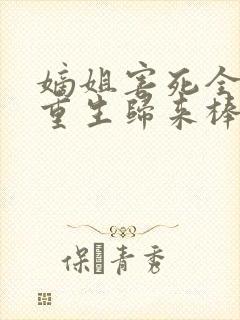 嫡姐害死全
重生歸来棒
保青秀